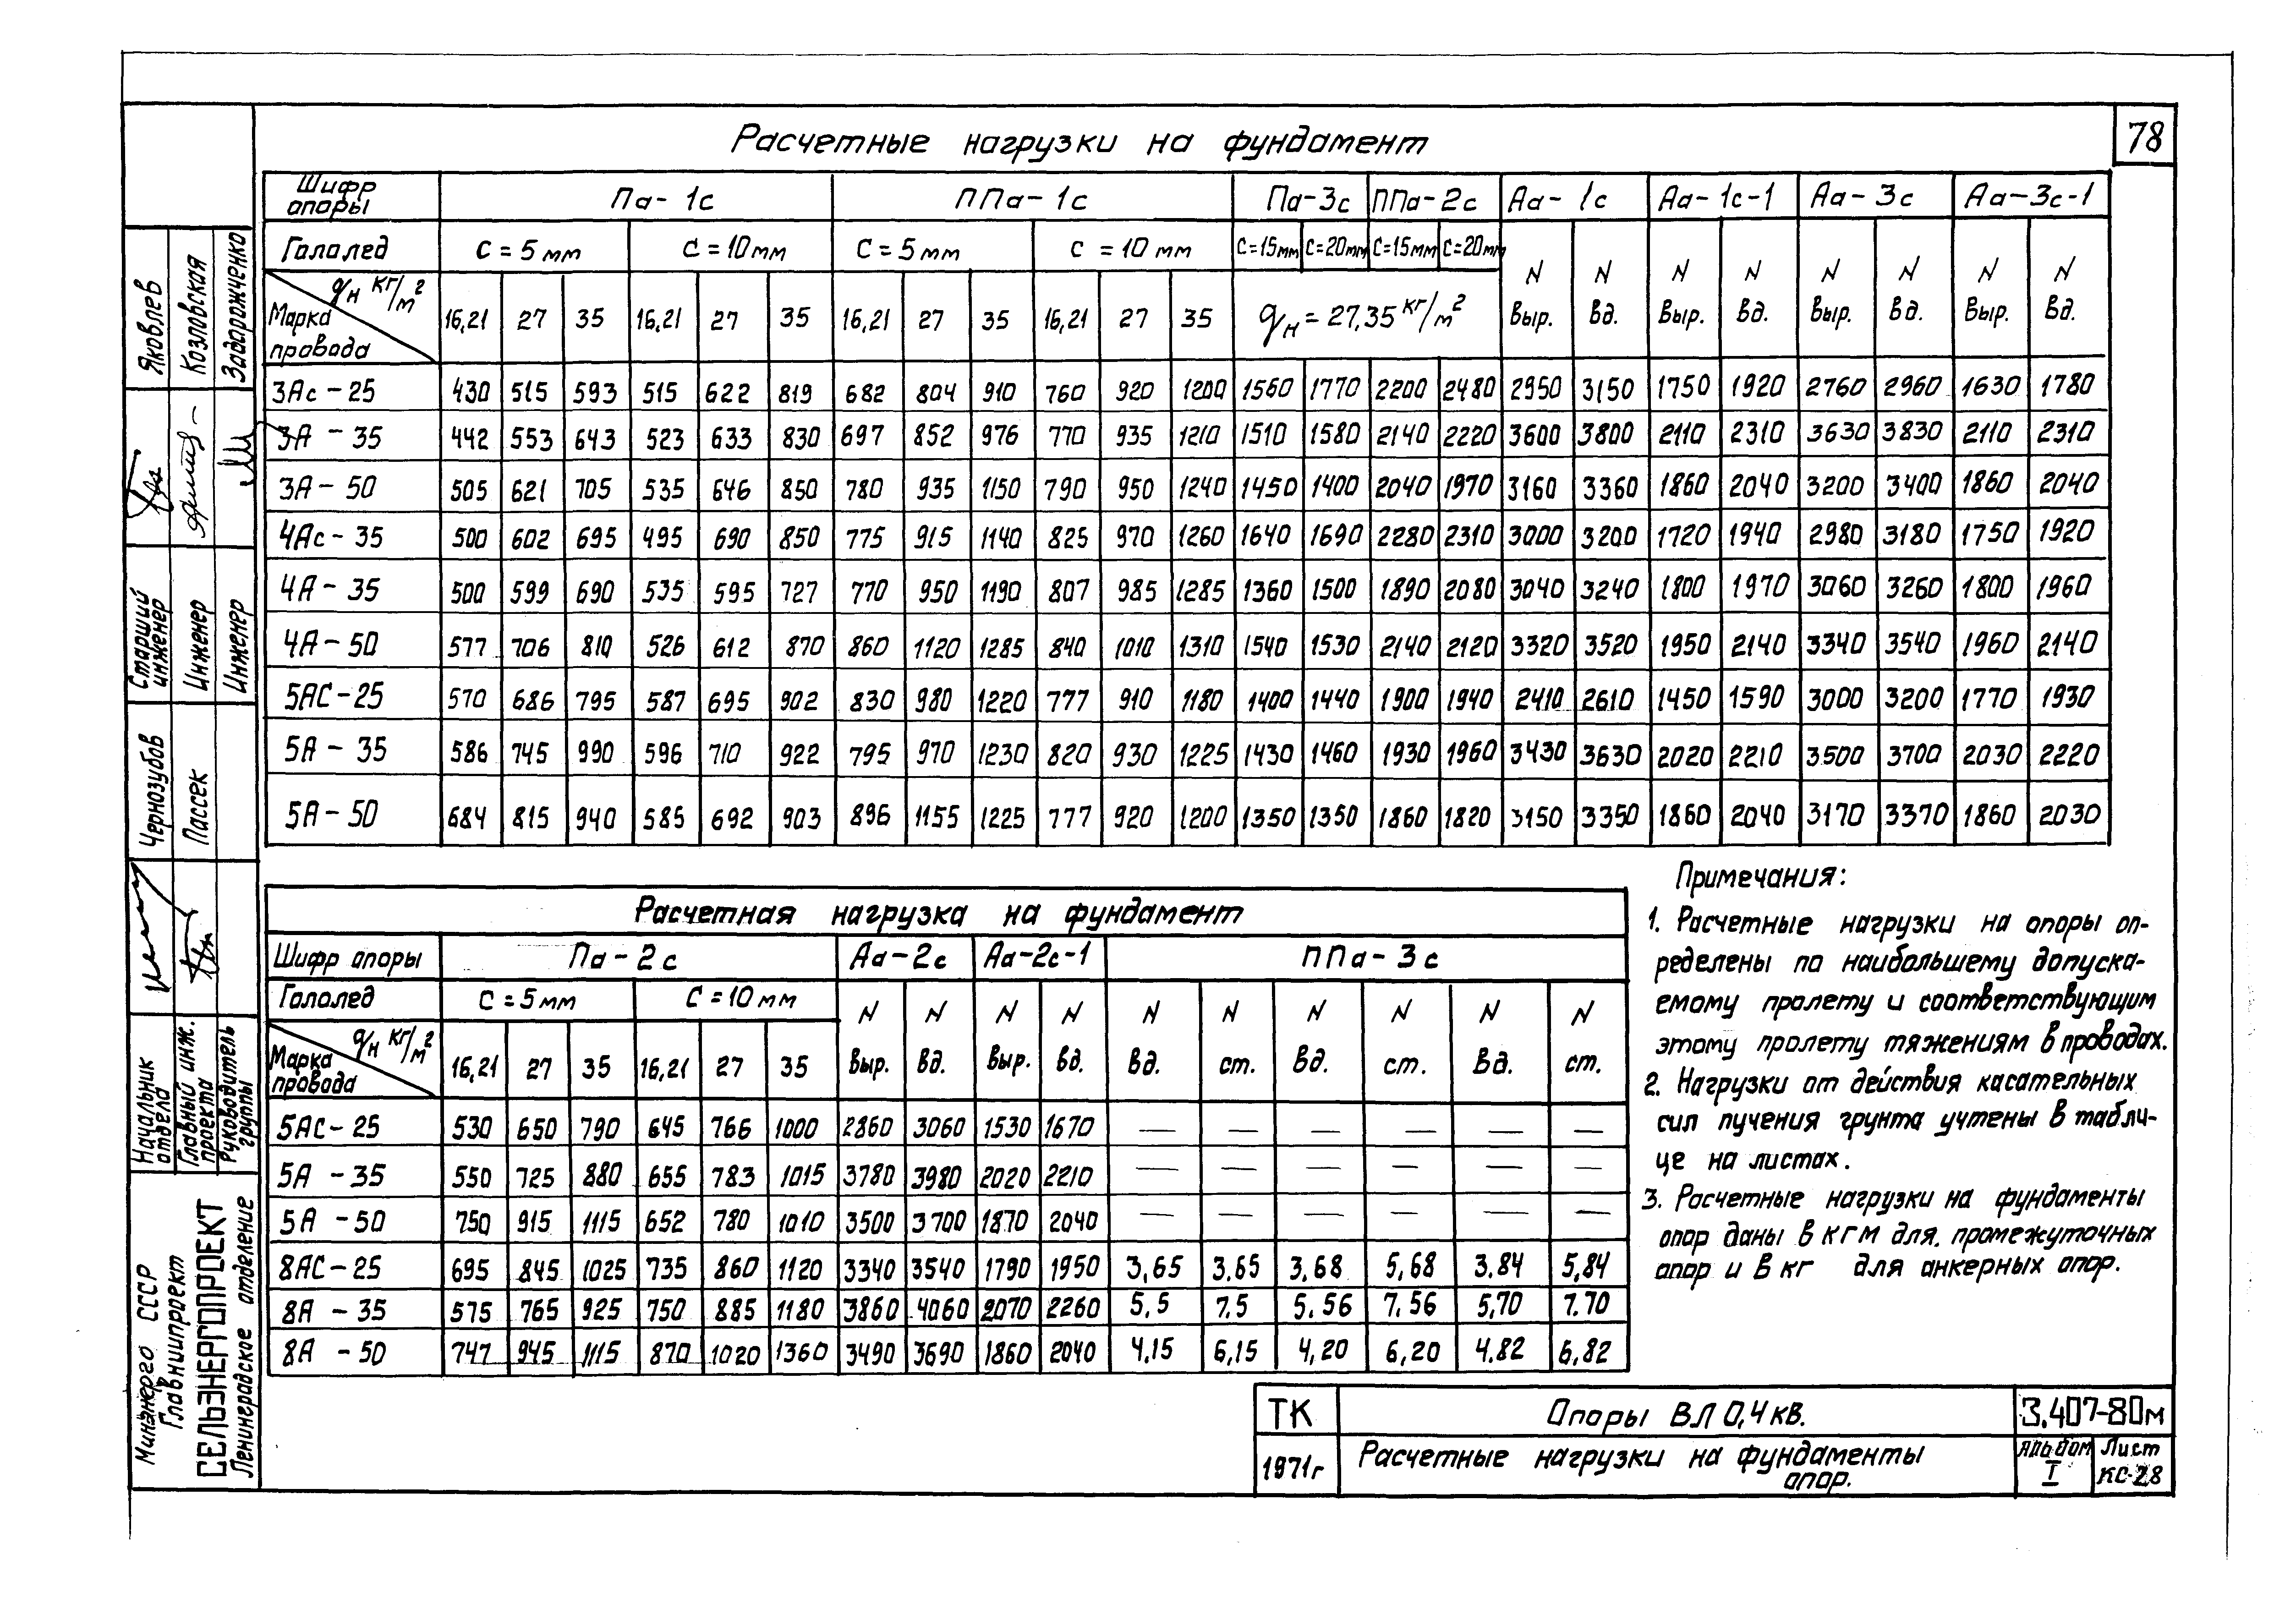 78
Расчетные нагрузки на фундамент
Шифр опоры Па-1с ППа-1с Па-3с ППа-2с Аа-1с Аа-1с-1 Аа-3с Аа-3с-1
Гололед С=5мм С=10мм С=5мм С=10мм С=15мм С=20мм С=15мм С=20мм N N N N N N N N
Марка провода qн кг/м² 16,21 27 35 16,21 27 35 16,21 27 35 16,21 27 35 qн=27,35 кг/м² Выр. Вд. Выр. Вд. Выр. Вд. Выр. Вд.
3Ас-25 430 515 593 515 622 819 682 804 910 760 920 1200 1560 1770 2200 2480 2950 3150 1750 1920 2760 2960 1630 1780
3А-35 442 553 643 523 633 830 697 852 976 770 935 1210 1510 1580 2140 2220 3600 3800 2110 2310 3630 3830 2110 2310
3А-50 505 621 705 535 646 850 780 935 1150 790 950 1240 1450 1400 2040 1970 3160 3360 1860 2040 3200 3400 1860 2040
4Ас-35 500 602 695 495 690 850 775 915 1140 825 970 1260 1640 1690 2280 2310 3000 3200 1720 1940 2980 3180 1750 1920
4А-35 500 599 690 535 595 727 770 950 1190 807 985 1285 1360 1500 1890 2080 3040 3240 1800 1970 3060 3260 1800 1960
4А-50 577 706 810 526 612 870 860 1120 1285 840 1010 1310 1540 1530 2140 2120 3320 3520 1950 2140 3340 3540 1960 2140
5АС-25 570 686 795 587 695 902 830 980 1220 777 910 1180 1400 1440 1900 1940 2410 2610 1450 1590 3000 3200 1770 1930
5А-35 586 745 990 596 710 922 795 970 1230 820 930 1225 1430 1460 1930 1960 3430 3630 2020 2210 3500 3700 2030 2220
5А-50 684 815 940 585 692 903 896 1155 1225 777 920 1200 1350 1350 1860 1820 3150 3350 1860 2040 3170 3370 1860 2030
Расчетная нагрузка на фундамент
Шифр опоры Па-2с Аа-2с Аа-2с-1 ППа-3с
Гололед С=5мм С=10мм N N N N N N N N N N
Марка провода qн кг/м² 16,21 27 35 16,21 27 35 Выр. Вд. Выр. Вд. Вд. ст. Вд. ст. Вд. ст.
5АС-25 530 650 790 645 766 1000 2860 3060 1530 1670 — — — — — —
5А-35 550 725 880 655 783 1015 3780 3980 2020 2210 — — — — — —
5А-50 750 915 1115 652 780 1010 3500 3700 1870 2040 — — — — — —
8АС-25 695 845 1025 735 860 1120 3340 3540 1790 1950 3,65 3.65 3,68 5,68 3.84 5,84
8А-35 575 765 925 750 885 1180 3860 4060 2070 2260 5,5 7.5 5.56 7,56 5,70 7.70
8А-50 747 945 1115 870 1020 1360 3490 3690 1860 2040 4.15 6,15 4,20 6,20 4.82 6,82
Примечания:
1. Расчетные нагрузки на опоры оп-
ределены по наибольшему допуска-
емому пролету и соответствующим
этому пролету тяжениям в проводах.
2. Нагрузки от действия касательных
сил пучения грунта учтены в табли-
це на листах.
3. Расчетные нагрузки на фундаменты
опор даны в кгм для промежуточных
опор и в кг для анкерных опор.
ТК Опоры ВЛ 0,4 кв. 3.407-80м
1971г Расчетные нагрузки на фундаменты опор. Альбом I Лист КС-28
Яковлев
Козловская
Задорожченко
Старший инженер
Инженер
Инженер
Чернозубов
Пассек
Начальник отдела
Главный инж. проекта
Руководитель группы
Минэнерго СССР
Главниипроект
СЕЛЬЭНЕРГОПРОЕКТ
Ленинградское отделение